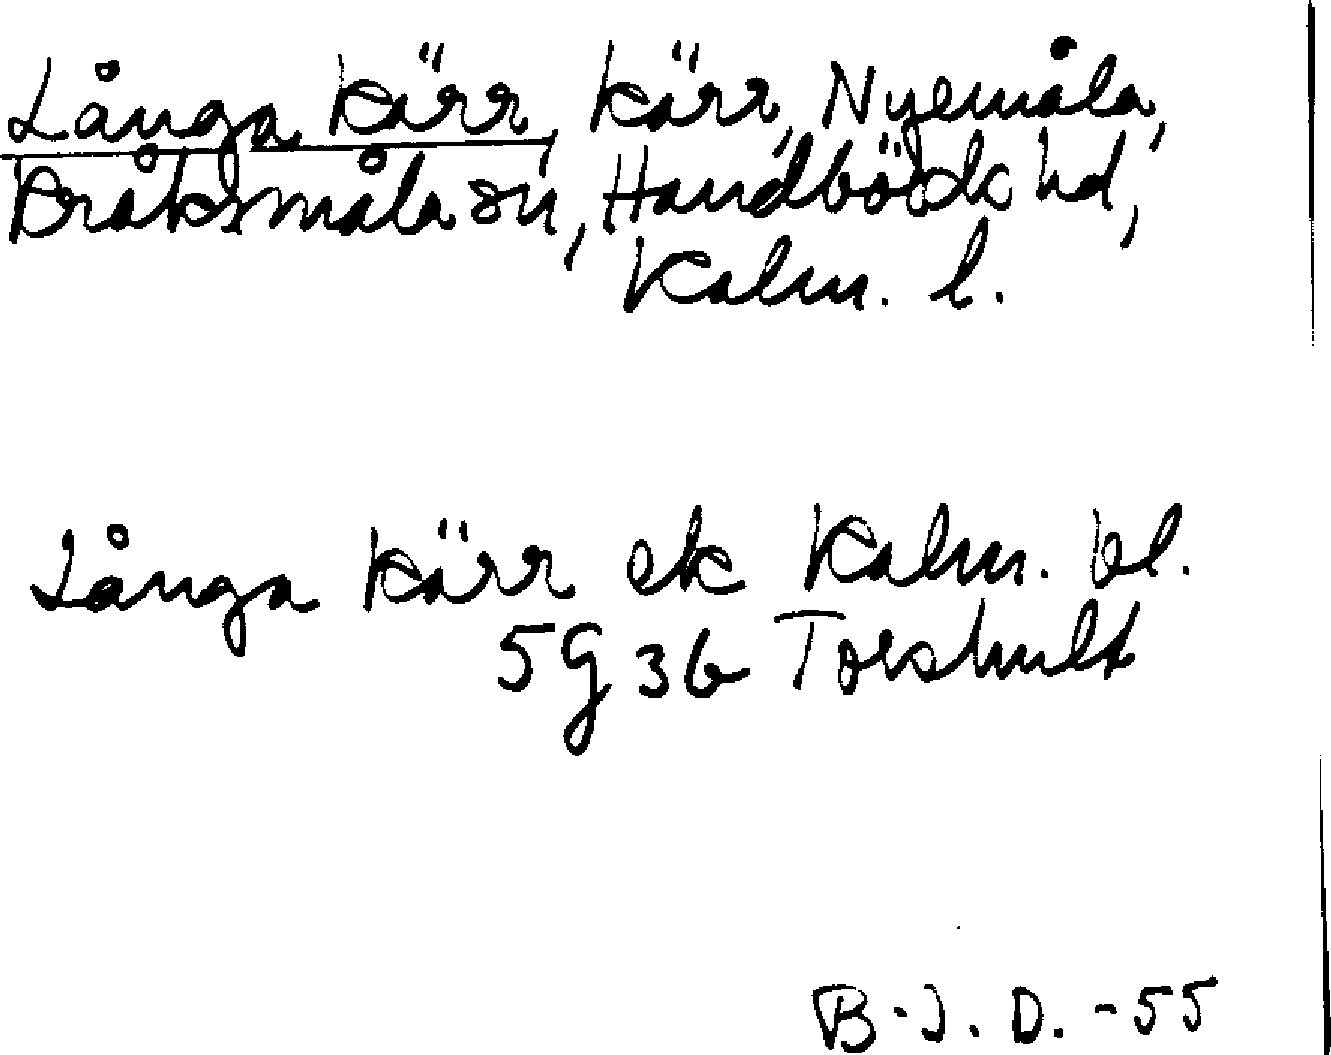 Långa kärr, kärr, Nyemåla,
Kråksmåla sn, Handbörds hd,
Kalm. l.
Långa kärr ek Kalm. bl.
5G 3b Torshult
B-J. D. -55